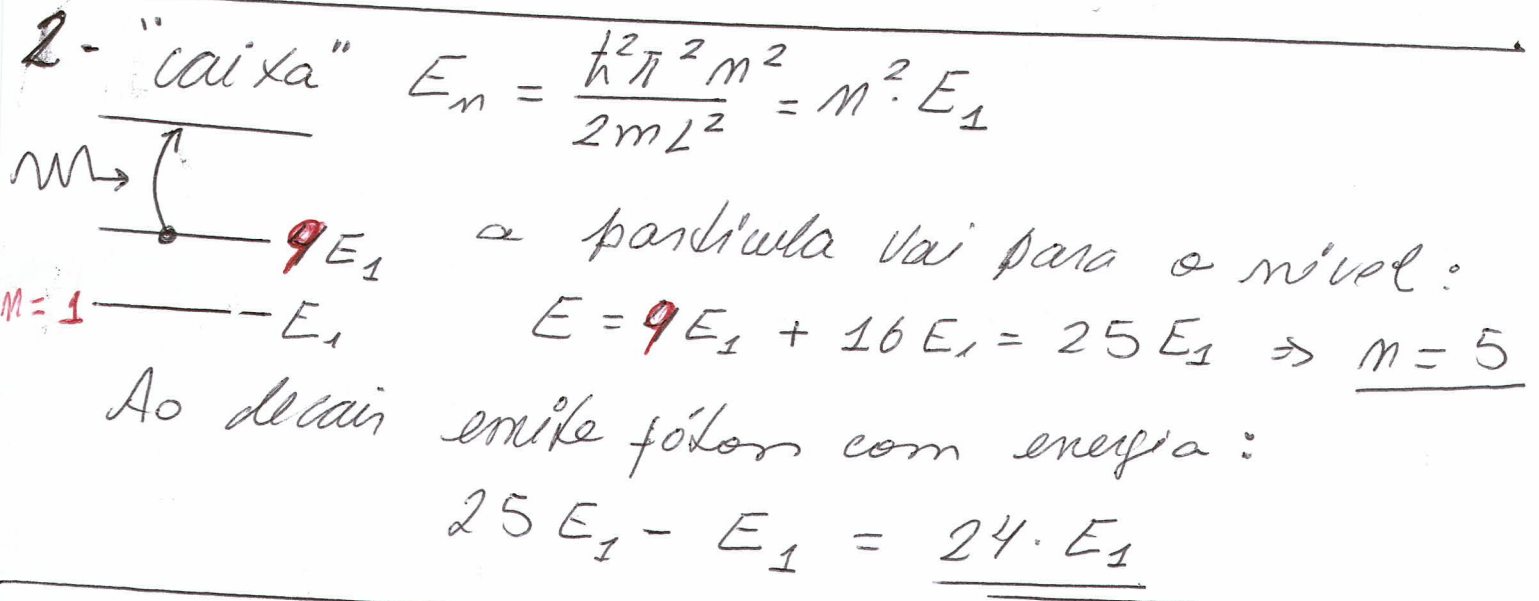 2- "caixa" Eₙ = ħ²π²n² / 2mL² = n²·E₁
9E₁ a partícula vai para o nível:
n=1 E₁ E = 9E₁ + 16E₁ = 25E₁ ⇒ n = 5
Ao decair emite fóton com energia:
25E₁ - E₁ = 24·E₁